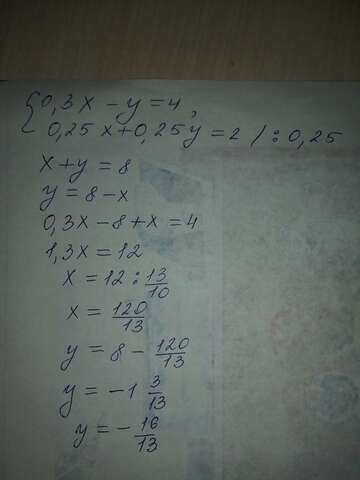 {0,3x - y = 4,
0,25x + 0,25y = 2 / : 0,25
x + y = 8
y = 8 - x
0,3x - 8 + x = 4
1,3x = 12
x = 12 : 13/10
x = 120/13
y = 8 - 120/13
y = -1 3/13
y = - 16/13